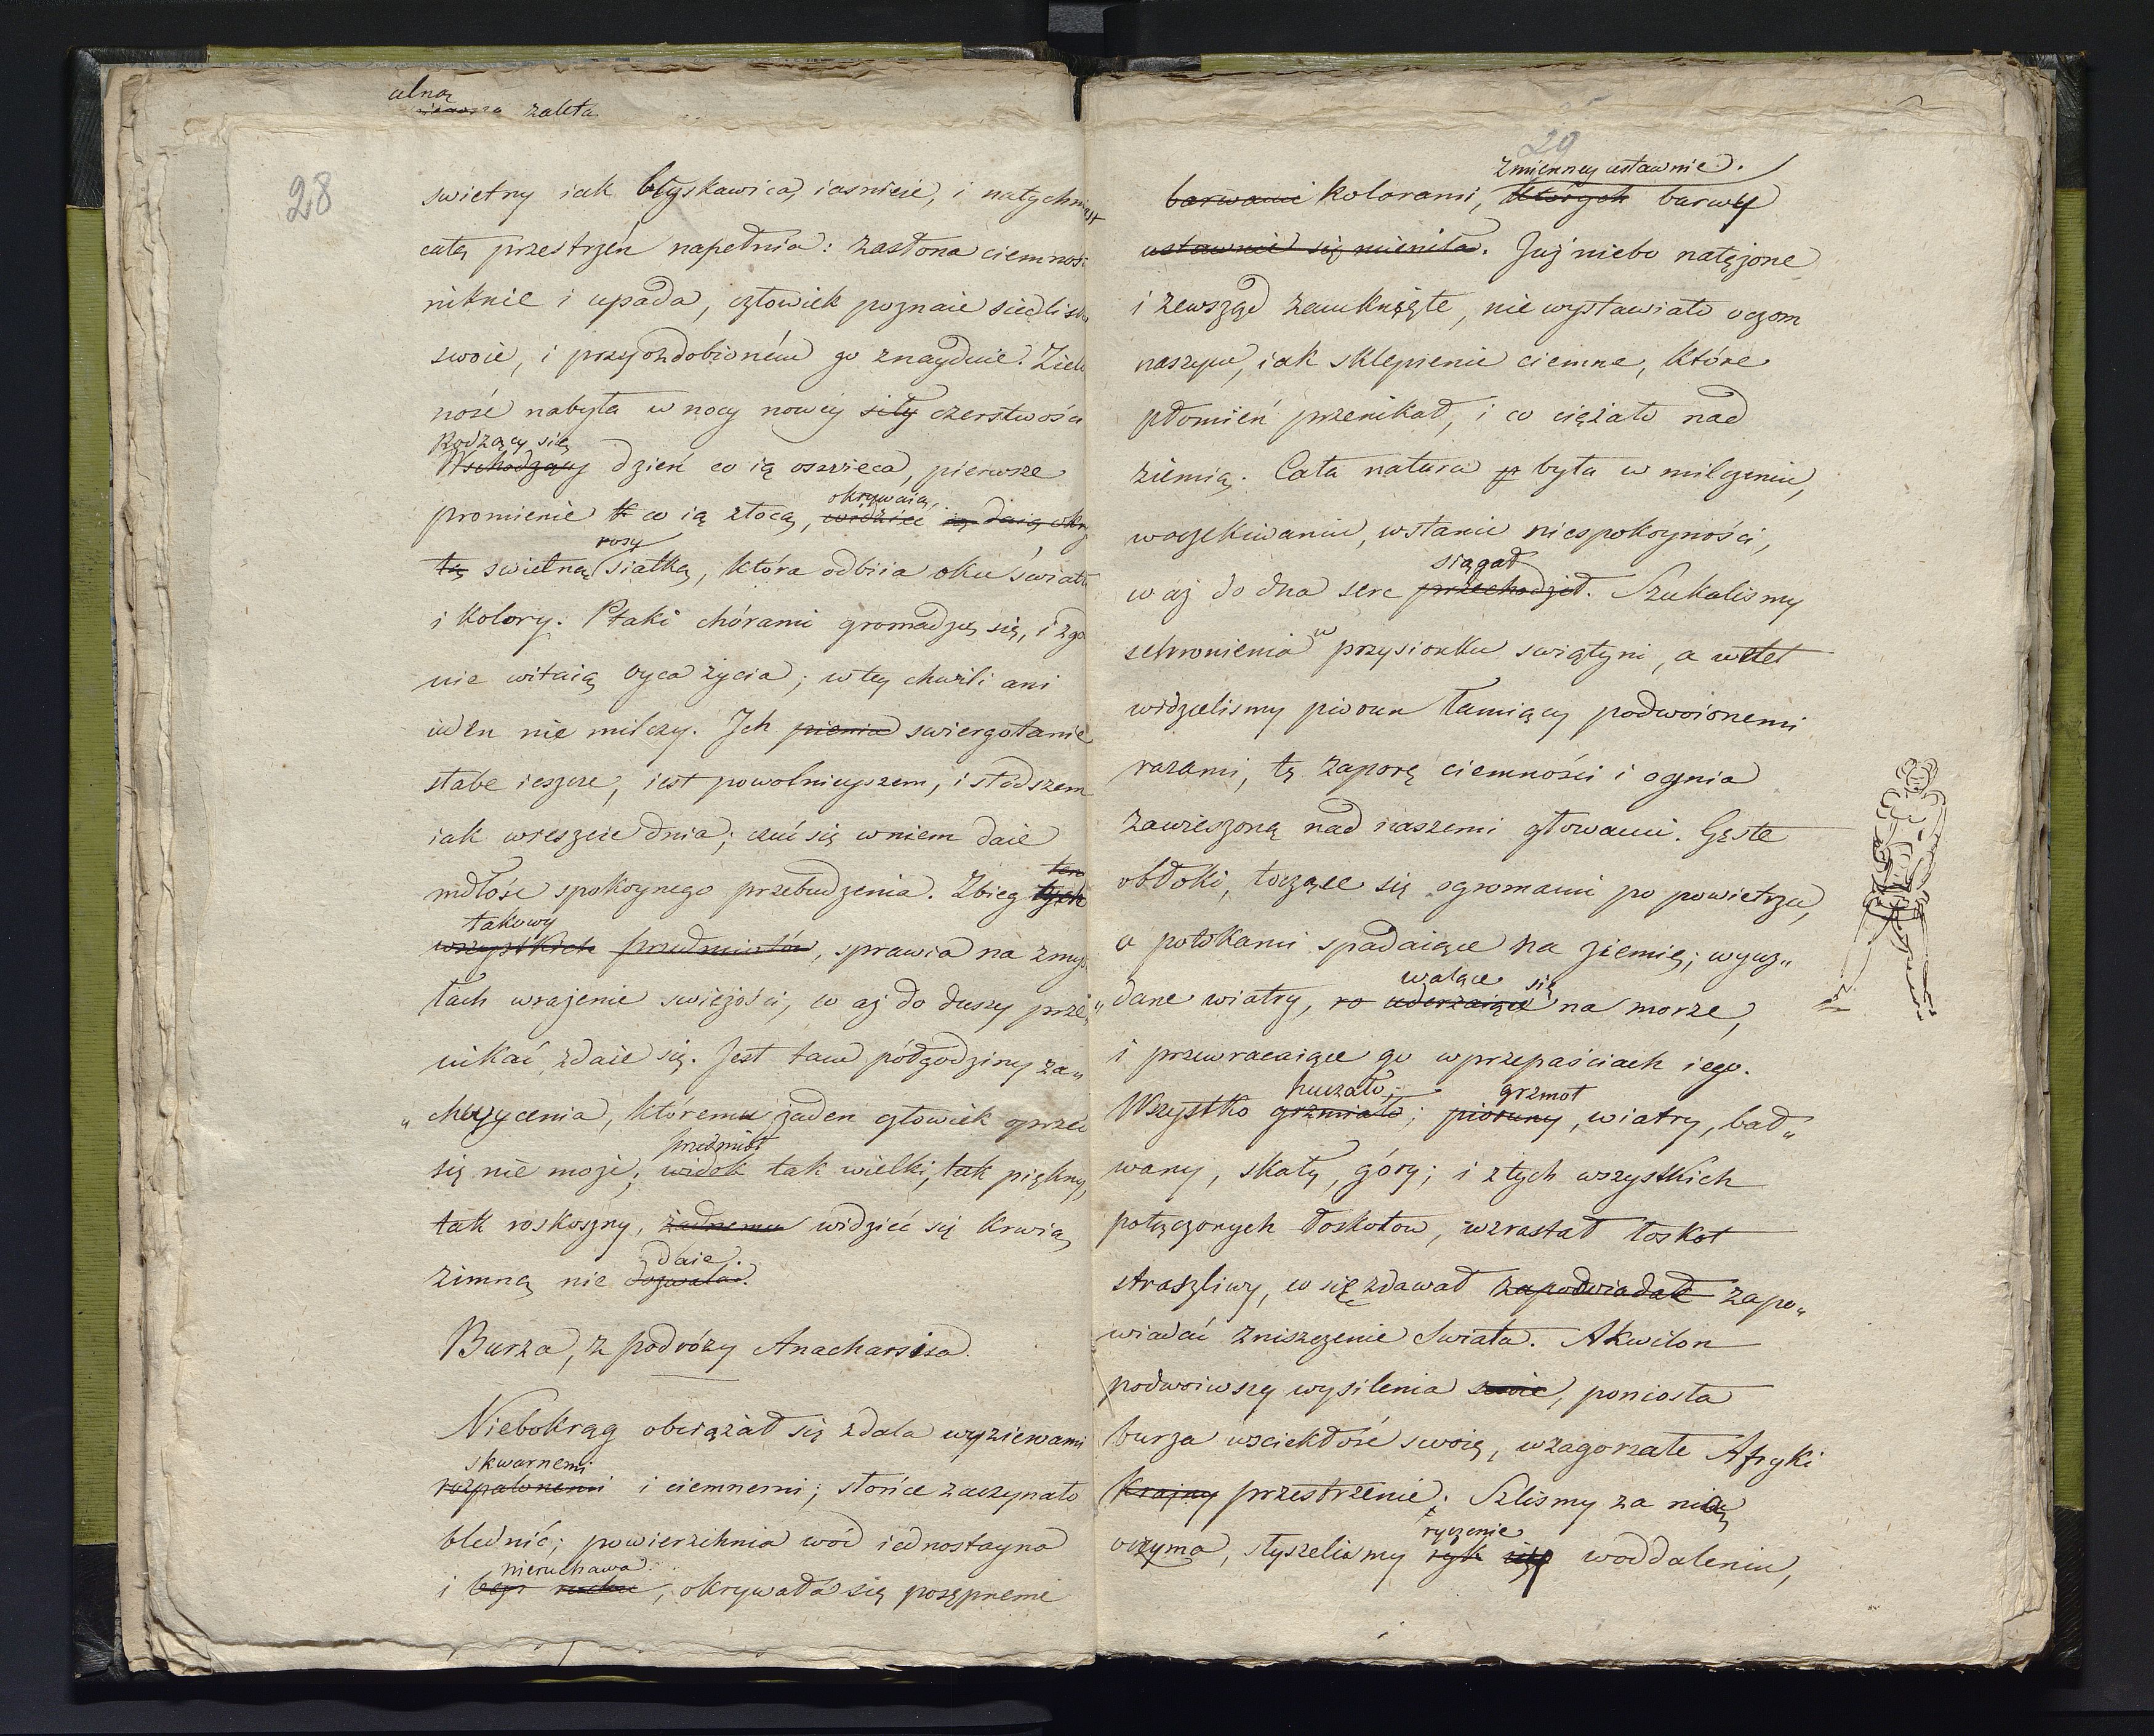 ulną
zaleta
28
swietny iak błyskawica, iasnieie, i natychmiast
całą przestrzen napełnia: zasłona ciemnos
niknie i upada, człowiek poznaie siedlisko
swoie, i przyozdobioném go znayduie. Zielo
ność nabyła w nocy nowéy siły czerstwości
Rodzący się
Wschodzący dzień co ią oswieca, pierwsze
okrywaią
promienie co ią złocą, widziec ią daią okry
rosy
tą swietną siatką, która odbiia oku światło
i kolory. Ptaki chórami gromadzą się, i zgo
nie witaią oyca życia; w tey chwili ani
ieden nie milczy. Ich pienia swiergotanie
słabe ieszcze, iest powolnieyszem, i słodszem
iak w reszcie dnia; czuć się w niem daie
mdłośc spokoynego przebudzenia. Zbieg tych
ten
takowy
wszystkich przedmiotów, sprawia na zmys
łach wrażenie swieżości, co aż do duszy prze„
nikać zdaie się. Jest tam półgodziny za„
„chwycenia, któremu żaden człowiek oprzec
przedmiot
się nie może; widok tak wielki, tak piękny,
tak roskoszny, żadnemu widzieć się krwią
daie.
zimną nie dozwala.
Burza, z podróży Anacharsisa.
Niebokrąg obciążał się zdala wyziewami
skwarnemi
rozpalonemi i ciemnemi; słońce zaczynało
blednić; powierzchnia wód iednostayna
nieruchawa
i bez ruchu, okrywała się posępnemi
29
zmienney ustawnie.
barwami kolorami, których barwy
ustawnie się mieniła. Już niebo natężone
i zewsząd zamknięte, nie wystawiało oczom
naszym, iak sklepienie ciemne, które
płomień przenikał, i co ciężało nad
ziemią. Cała natura była w milczeniu,
w oczekiwaniu, w stanie niespokoyności,
siągał
co aż do dna serc przechodził. Szukalismy
schronienia w przysionku swiątyni, a wtet
widzielismy piorun łamiący podwoionemi
razami, tę zaporę ciemności i ognia
zawieszoną nad naszemi głowami. Gęste
obłoki, toczące się ogromami po powietrzu,
a potokami spadaiące na ziemię; wyuz„
walące się
„dane wiatry, ro uderzaiące na morze,
i przewracaiące go w przepaściach iego.
huczało; grzmot
Wszystko grzmiało; pioruny, wiatry, bał„
wany, skały, góry; i z tych wszystkich
połączonych łoskotow, wzrastał łoskot
straszliwy, co się zdawał zapowiadać zapo„
wiadać zniszczenie Swiata. Akwilon
podwoiwszy wysilenia swoie, poniosła
burza wsciekłość swoią, w zagorzałe Afryki
Krainy przestrzenie; Szlismy za nią
ryczenie
oczyma, słyszelismy ryk iey w oddaleniu,